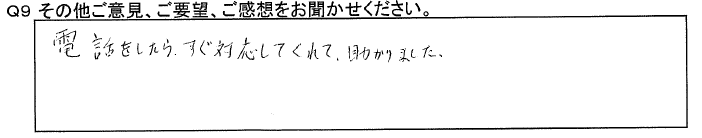 Q9 その他ご意見、ご要望、ご感想をお聞かせください。
電話をしたら、すぐ対応してくれて、助かりました、